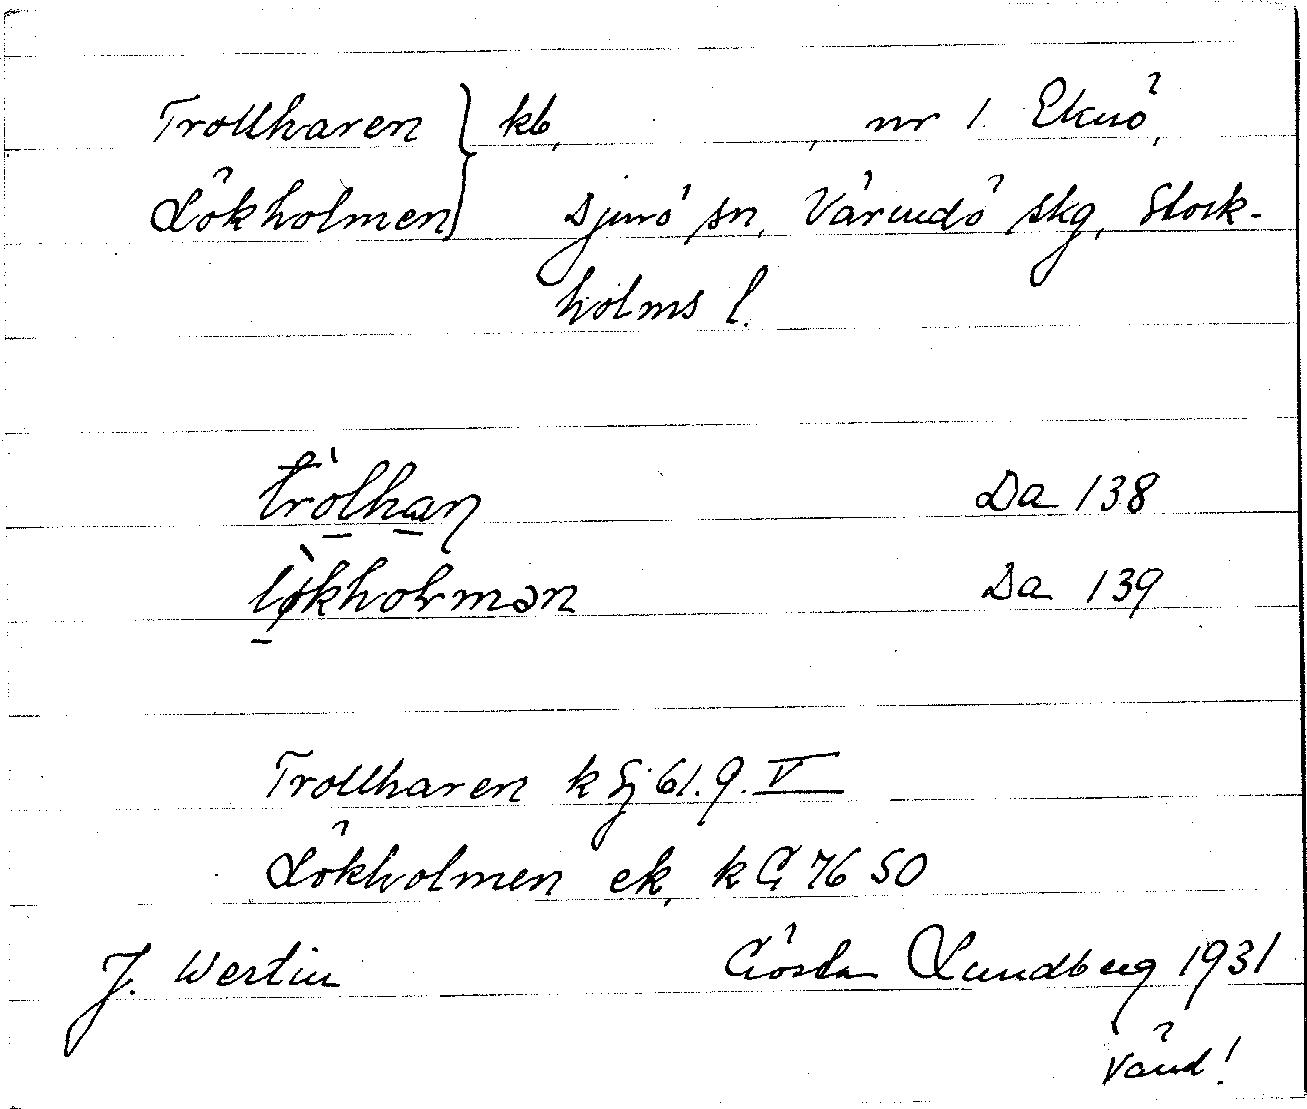 Trollharen } kb, , nr 1. Eknö,
Lökholmen } Djurö sn, Värmdö skg, Stock-
holms l.
tròlhaṇ Da 138
lø̀kholmən Da 139
Trollharen k Gj 61. 9. V
Lökholmen ek, k G 76 50
J. Westin Gösta Lundberg 1931
Vänd!